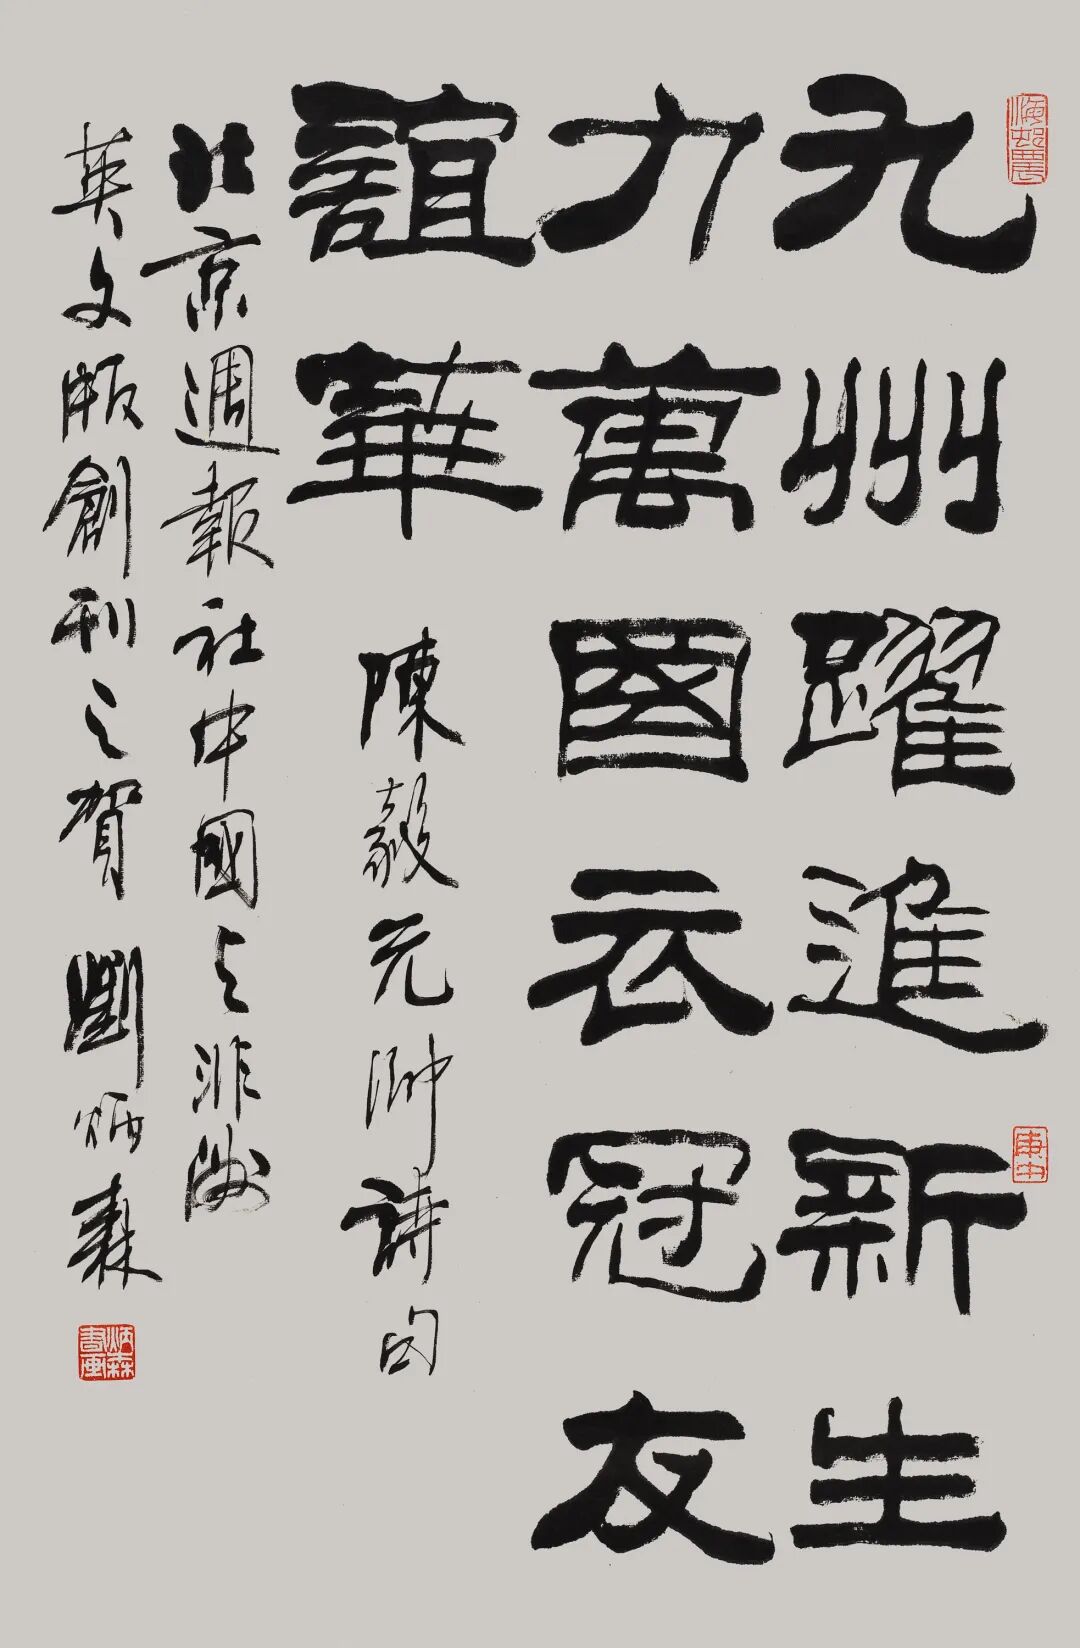 九州躍進新生
力萬國云冠友
誼華
陳毅元帥詩句
北京週報社中國与非洲
英文版創刊之賀 劉炳森
海村農
庚申
炳森書画